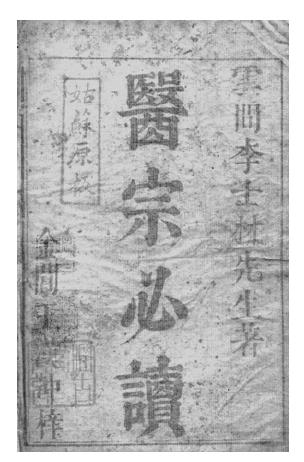 雲間李士材先生著
醫宗必讀
姑蘇原板
金閶王
梓